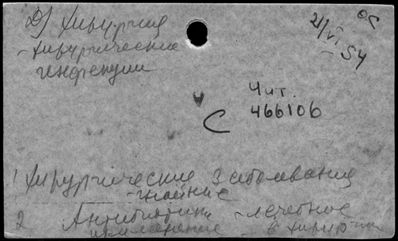 2) Хирургия
- хирургические
инфекции
21/VI-54
ОС
Чит.
466106
С
1 Хирургические заболевания
- гнойные
2 Антибиотики - лечебное
применение - в хирургии